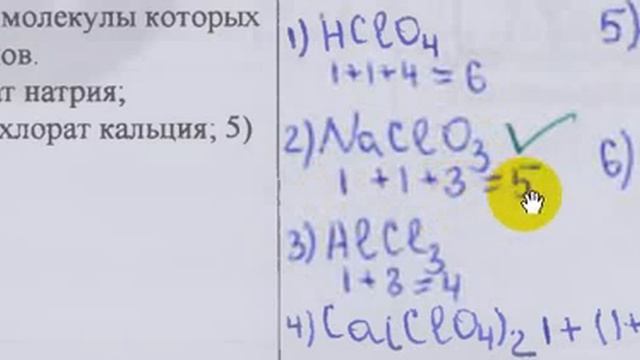 молекулы которых
ов.
ат натрия;
хлорат кальция; 5)
1) HClO4
1+1+4=6
2) NaClO3 ✓
1+1+3=5
3) AlCl3
1+3=4
4) Ca(ClO4)2 1+(1+
5)
6)